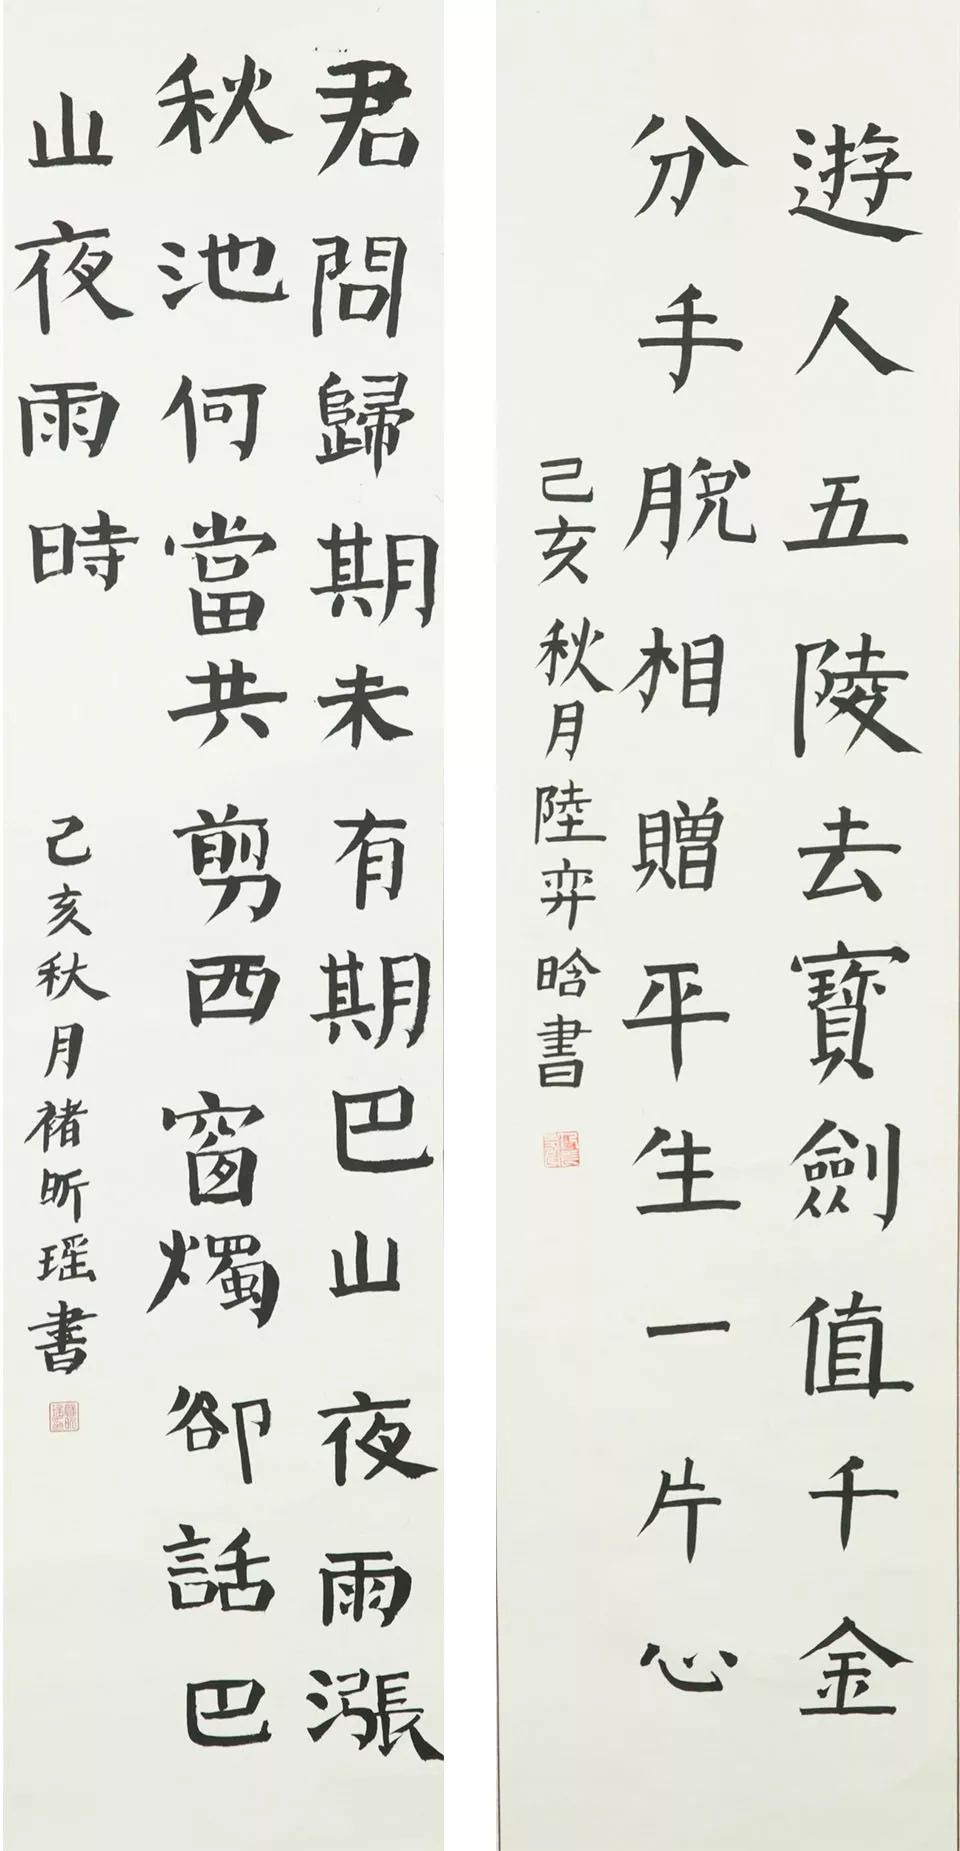 遊人五陵去寶劍值千金
分手脫相贈平生一片心
己亥秋月陸弈晗書
君問歸期未有期巴山夜雨漲
秋池何當共剪西窗燭卻話巴
山夜雨時
己亥秋月褚昕瑶書